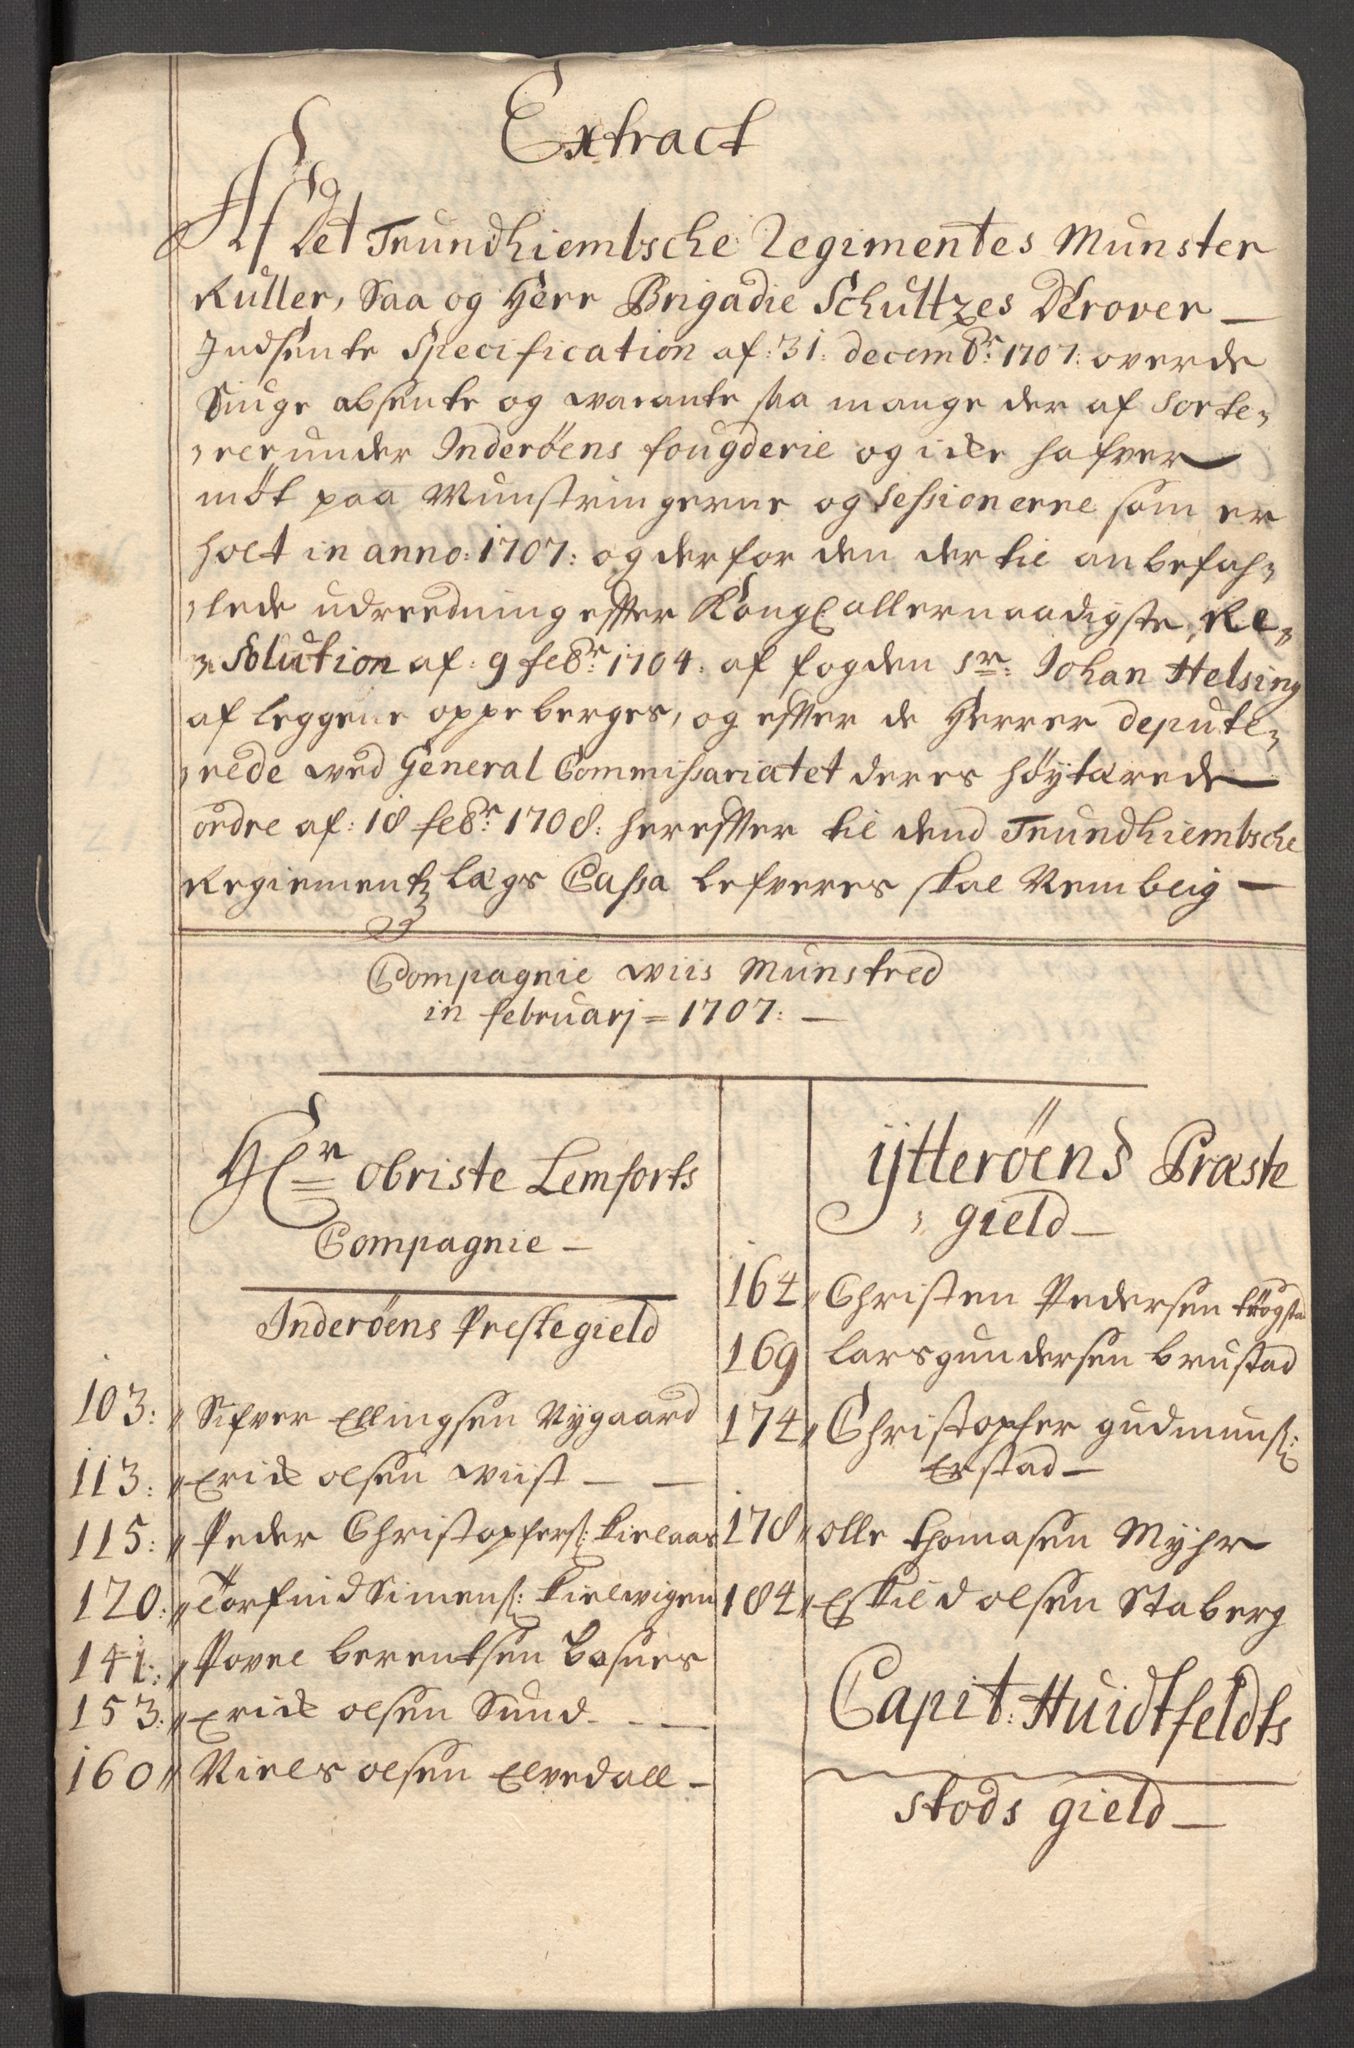 Extract
Af Det Trundhiembsche Regimentes Munster
Ruller, Saa og Herr Brigadie Schultzes Derover
Indsente Specification af: 31: decembr: 1707: over de
Siuge absente og vacante saa mange der af Sorte-
rer under Inderöens fougderie og icke hafver
möt paa Munstringerne og Sessionerne som er
holt in anno: 1707: og derfor den der til anbefah-
lede udreedning effter Kongl allernaadigste Re-
Solution af: 9 febr: 1704: af fogden Sr: Johan Helsing
af leggene oppeberges, og effter de Herrer depute-
rede ved General Commissariatet deres höytærede
ordre af: 18 febr: 1708: hereffter til dend Trundhiembsche
Regiementz lægs Cassa lefveres skal Nemblig
Compagnie wiis Munstred
in februarj = 1707:
Hr Obriste Lemforts
Compagnie
Inderöens Prestegield
103: Sifver Ellingsen Nygaard
113: Erick olsen wiist
115: Peder Christophers: kielaas
120: Torfind Simens: kielwigen
141: Povel berentsen
153: Erick olsen Sund
160 Niels olsen Elvedall
ijtteröens Præste
gield
164 Christen Pedersen
169 lars gundersen brustad
174 Christopher gudmuns:
Erstad
178 olle thomasen Myhr
184 Eskild olsen Staberg
Capit: Huidtfeldts
Stods gield